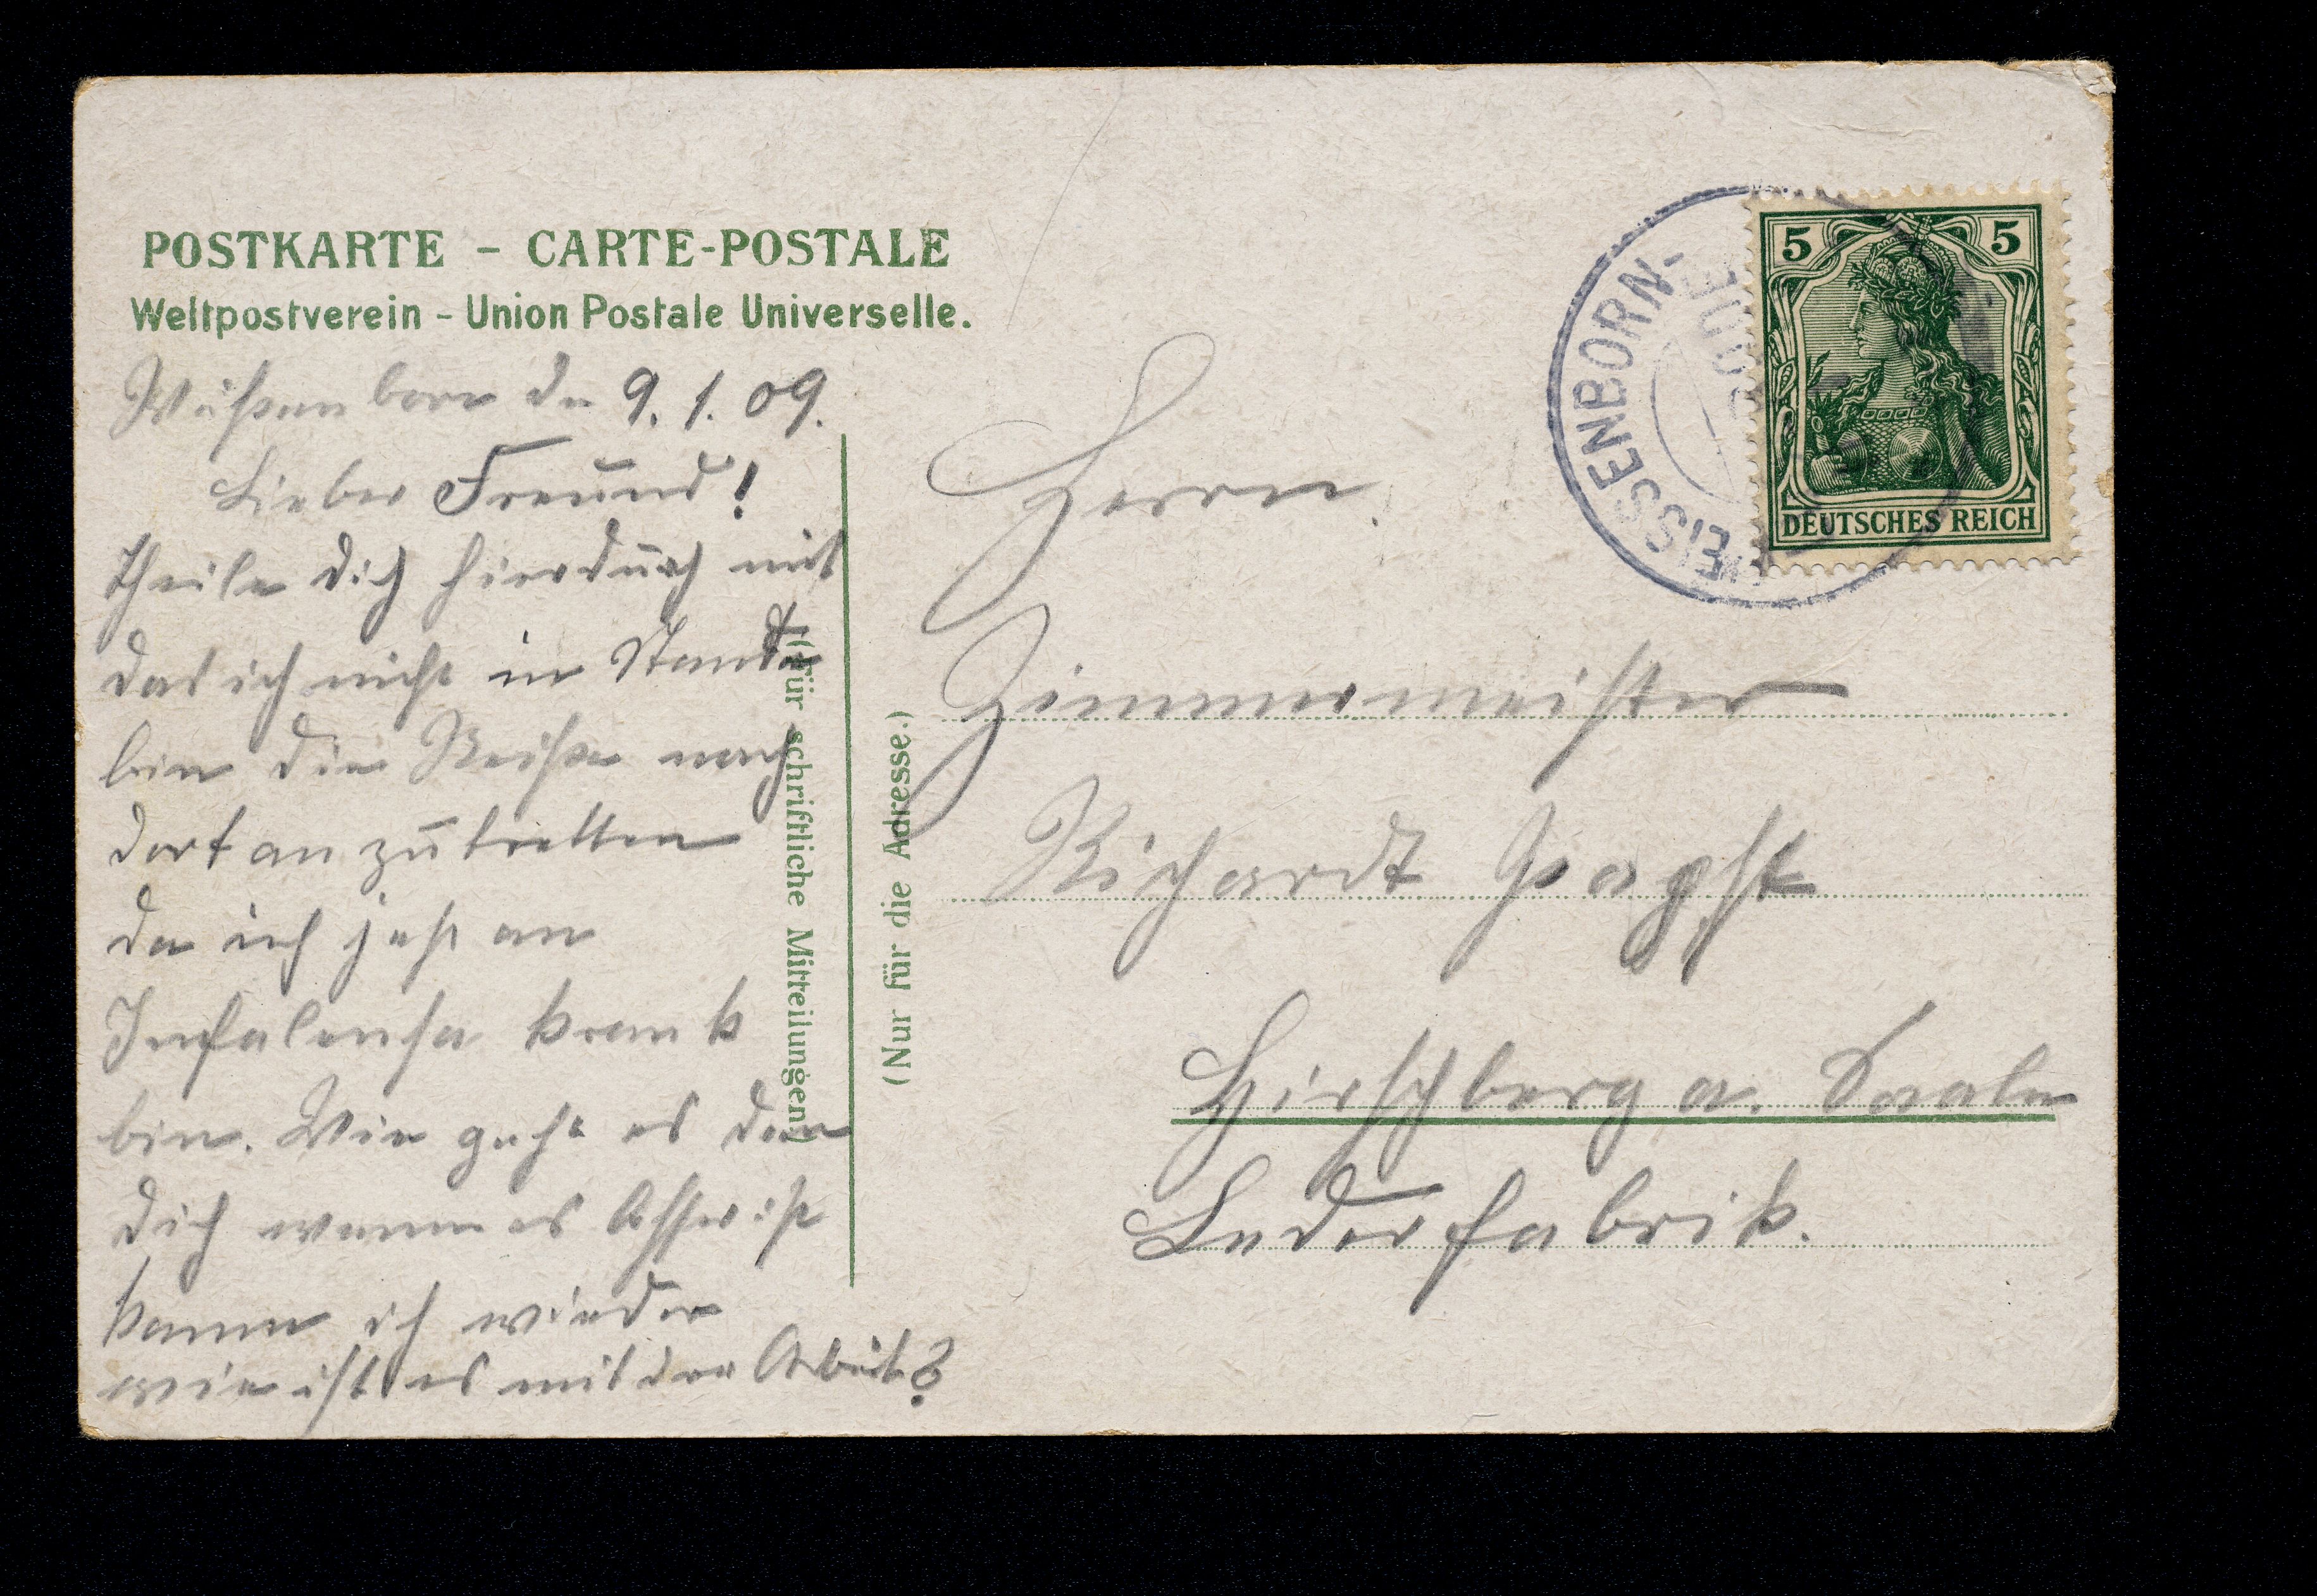 POSTKARTE – CARTE-POSTALE
Weltpostverein – Union Postale Universelle.
Weißenborn de 9. 1. 09.
Lieber Freund!
Theile dich hierdurch mit
das ich nicht in Stande
bin die Reiße nach
dort an zu tretten
da ich jest an
Infalensa krank
bin. Wie geht es den
dich wenn es besser ist
komme ich wieder
wie ist es mit der Arbeit?
(Für schriftliche Mitteilungen)
(Nur für die Adresse.)
EISSENBORN-
5 5
DEUTSCHES REICH
Herrn
Zimmermeister
Richardt Papst
Hirschberg a. Saale
Lederfabrik.